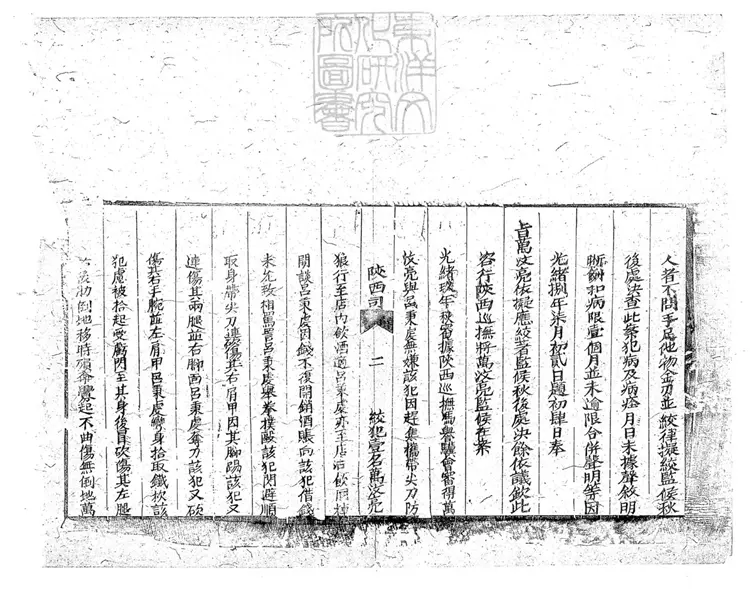 東洋文
化研究
所圖書
人者不問手足他物金刃並絞律擬絞監候秋
後處決查此案犯病及病痊月日未據聲敘明
晰酌扣病限壹個月並未逾限合併聲明等因
光緒捌年柒月初貳日題初肆日奉
旨萬汶亮依擬應絞著監候秋後處決餘依議欽此
咨行陝西巡撫將萬汶亮監候在案
光緒玖年秋審據陝西巡撫馮譽驥會審得萬
汶亮與呂秉慶無嫌該犯因趕集攜帶尖刀防
狼行至店內飲酒適呂秉慶亦至店沽飲同
閒談呂秉慶因錢不復開銷酒賬向該犯借錢
未允致相罵詈呂秉慶舉拳撲毆該犯閃避順
取身帶尖刀連傷其右肩甲因其腳踢該犯又
連傷其兩腿並右腳面呂秉慶奪刀該犯又砍
傷其右手腕並左肩甲呂秉慶彎身拾取鐵杴該
犯慮被拾起受虧閃至其身後冒砍傷其左腿
倒地移時殞命釁起不曲傷無倒地萬
陝西司
二
絞犯壹名萬汶亮